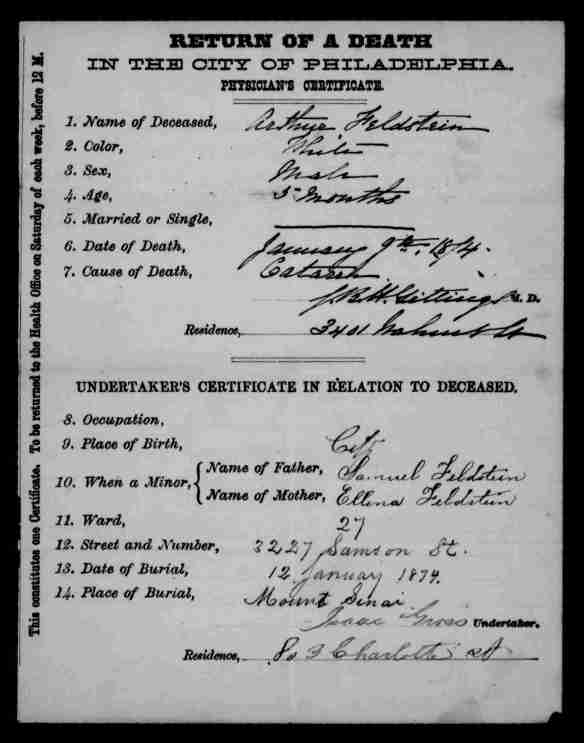 RETURN OF A DEATH
IN THE CITY OF PHILADELPHIA.
PHYSICIAN'S CERTIFICATE.
1. Name of Deceased, Arthur Feldstein
2. Color, White
3. Sex, Male
4. Age, 5 Months
5. Married or Single,
6. Date of Death, January 9th, 1874.
7. Cause of Death, Catarrh
Gittings M. D.
Residence, 3401 Walnut St
UNDERTAKER'S CERTIFICATE IN RELATION TO DECEASED.
8. Occupation,
9. Place of Birth, City
10. When a Minor, { Name of Father, Samuel Feldstein
Name of Mother, Ellena Feldstein
11. Ward, 27
12. Street and Number, 3227 Samson St.
13. Date of Burial, 12 January 1874.
14. Place of Burial, Mount Sinai
Isaac Gross Undertaker.
Residence, 803 Charlotte St
This constitutes one Certificate. To be returned to the Health Office on Saturday of each week, before 12 M.